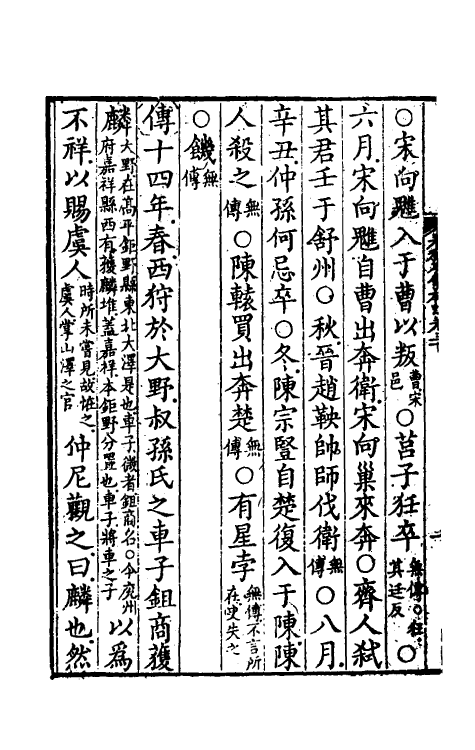 ○宋向魋入于曹以叛曹宋邑○莒子狂卒無傳○狂其廷反○
六月宋向魋自曹出奔衛宋向巢來奔○齊人弑
其君壬于舒州○秋晉趙鞅帥師伐衛無傳○八月
辛丑仲孫何忌卒○冬陳宗豎自楚復入于陳陳
人殺之無傳○陳轅買出奔楚無傳○有星孛無傳不言所在史失之
○饑無傳
傳十四年春西狩於大野叔孫氏之車子鉏商獲
麟大野在高平鉅野縣東北大澤是也車子微者鉏商名○今兖州府嘉祥縣西有獲麟堆蓋嘉祥本鉅野分置也車子將車之子以爲
不祥以賜虞人時所未嘗見故怪之虞人掌山澤之官仲尼觀之曰麟也然